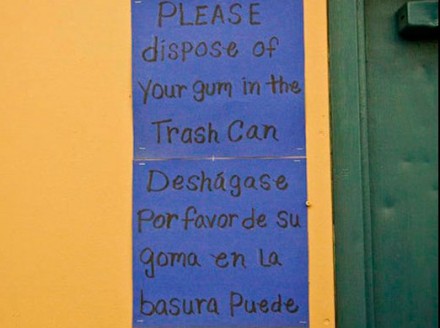 PLEASE
dispose of
your gum in the
Trash Can
Deshágase
Por favor de su
goma en La
basura Puede